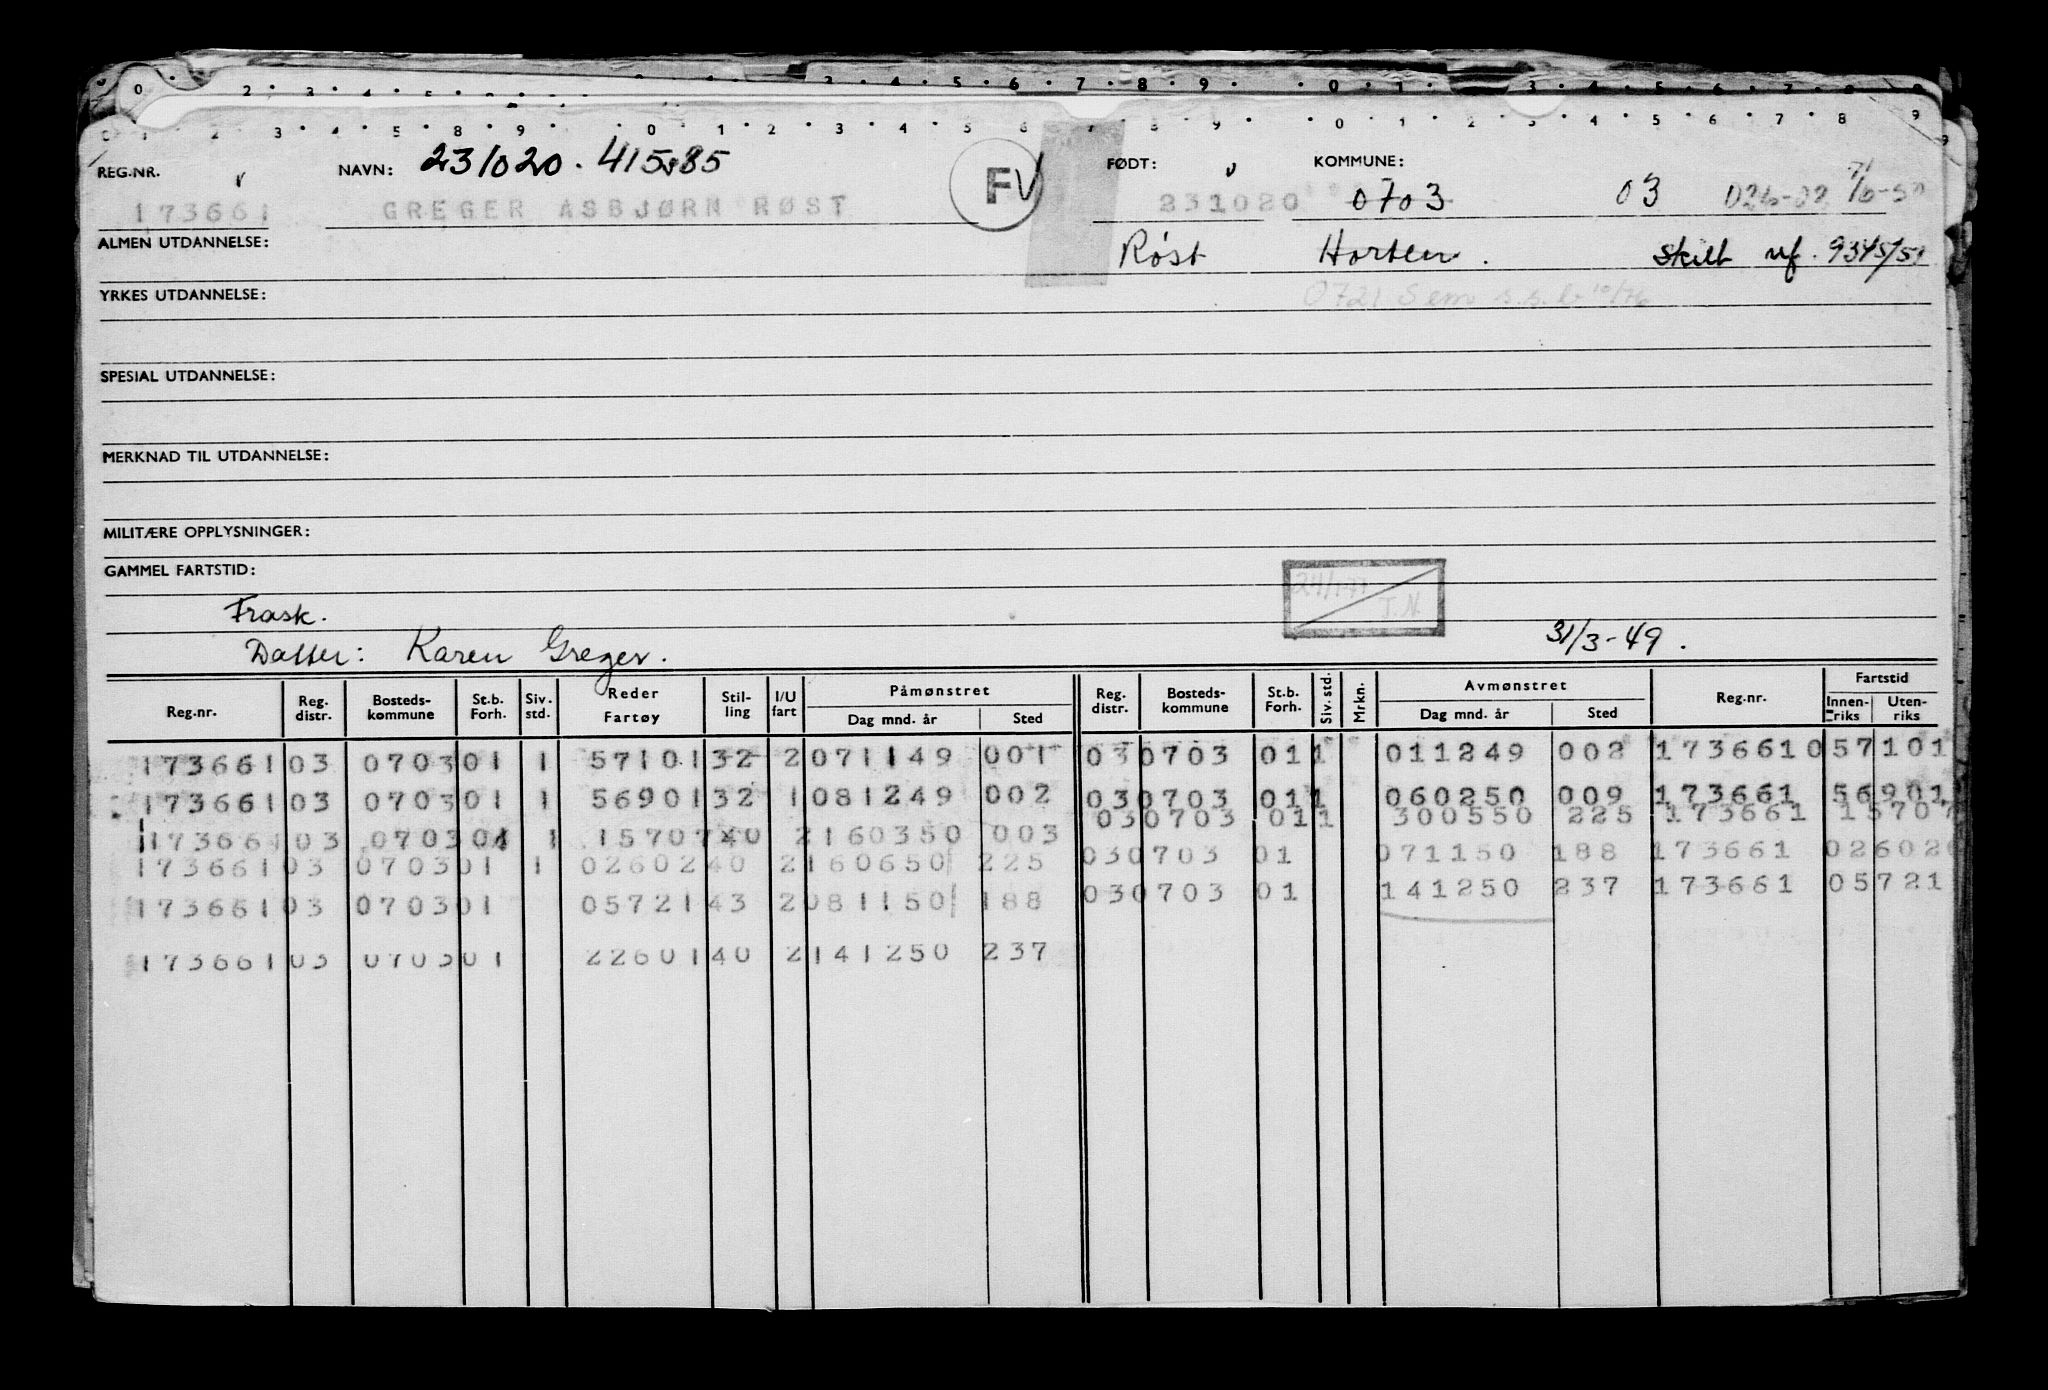 0 2 3 4 5 3 4 5 6 7 8 9 0 1 3 4 5 6 7 8 9
0 1 2 3 4 5 8 9 0 1 2 3 4 5 6 7 8 9 0 1 2 3 4 5 6 7 8 9
REG.NR. NAVN: 231020. 41585 FV FØDT: KOMMUNE:
173661 GREGER ASBJØRN RØST 231020 0703 03 026-02
ALMEN UTDANNELSE: Røst Horten. Skilt nf. 9345/51
YRKES UTDANNELSE: 0721 Sem s.s.b 10/76
SPESIAL UTDANNELSE:
MERKNAD TIL UTDANNELSE:
MILITÆRE OPPLYSNINGER:
GAMMEL FARTSTID:
T.N.
Frask.
Datter: Karen Greger. 31/3-49.
Reg.nr. Reg. distr. Bosteds-kommune St.b. Forh. Siv. std. Reder Fartøy Stil-ling I/U fart Påmønstret Dag mnd. år Sted Reg. distr. Bosteds-kommune St.b. Forh. Siv. std. Mrkn. Avmønstret Dag mnd. år Sted Reg.nr. Fartstid Innen-riks Uten-riks
173661 03 0703 01 1 57101 32 2 071149 001 03 0703 01 1 011249 002 173661 057101
173661 03 0703 01 1 56901 32 1 081249 002 03 0703 01 1 060250 009 173661 56901
173661 03 0703 01 1 15707 40 2 160350 003 03 0703 01 1 300550 225 173661 15707
173661 03 0703 01 1 02602 40 2 160650 225 03 0703 01 071150 188 173661 02602
173661 03 0703 01 05721 43 2 081150 188 03 0703 01 141250 237 173661 05721
173661 03 0703 01 22601 40 2 141250 237